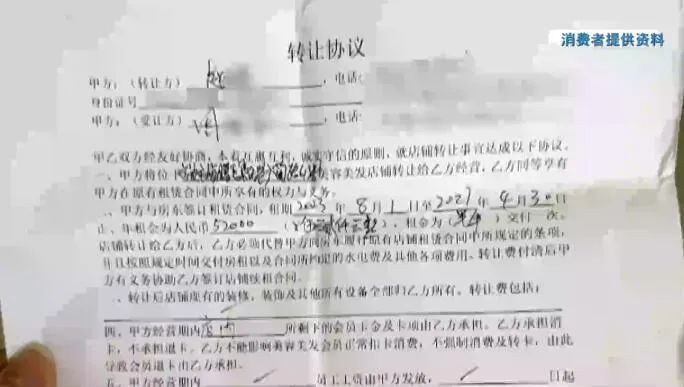 消费者提供资料
转让协议
甲方:(转让方) 赵 ,电话:
身份证号
甲方:(受让方) ,电话:
甲乙双方经友好协商,本着互惠互利,诚实守信的原则、就店铺转让事宜达成以下协议。
一、甲方将位于 美容美发店铺转让给乙方经营,乙方同等享有
甲方在原有租赁合同中所享有的权力与义务。
、甲方与房东签订租赁合同,租期2023年8月1日至2027年4月30日
止,年租金为人民币52000( ),租金为( )交付 次。
店铺转让给乙方后,乙方必须代替甲方向房东履行原有店铺租赁合同中所规定的条项,
并且按照规定时间交付房租以及合同所约定的水电费及其他各项费用。转让费付清后甲
方有义务协助乙方签订店铺续租合同。
、转让后店铺现有的装修,装饰及其他所有设备全部归乙方所有。转让费包括:
四、甲方经营期内店内 所剩下的会员卡金及卡项由乙方承担。乙方承担消
卡,不承担退卡。乙方不能影响美容美发会员正常扣卡消费,不强制消费及转卡,由此
导致会员退卡由乙方承担。
五、甲方经营期内 员工工资由甲方发放, 日起